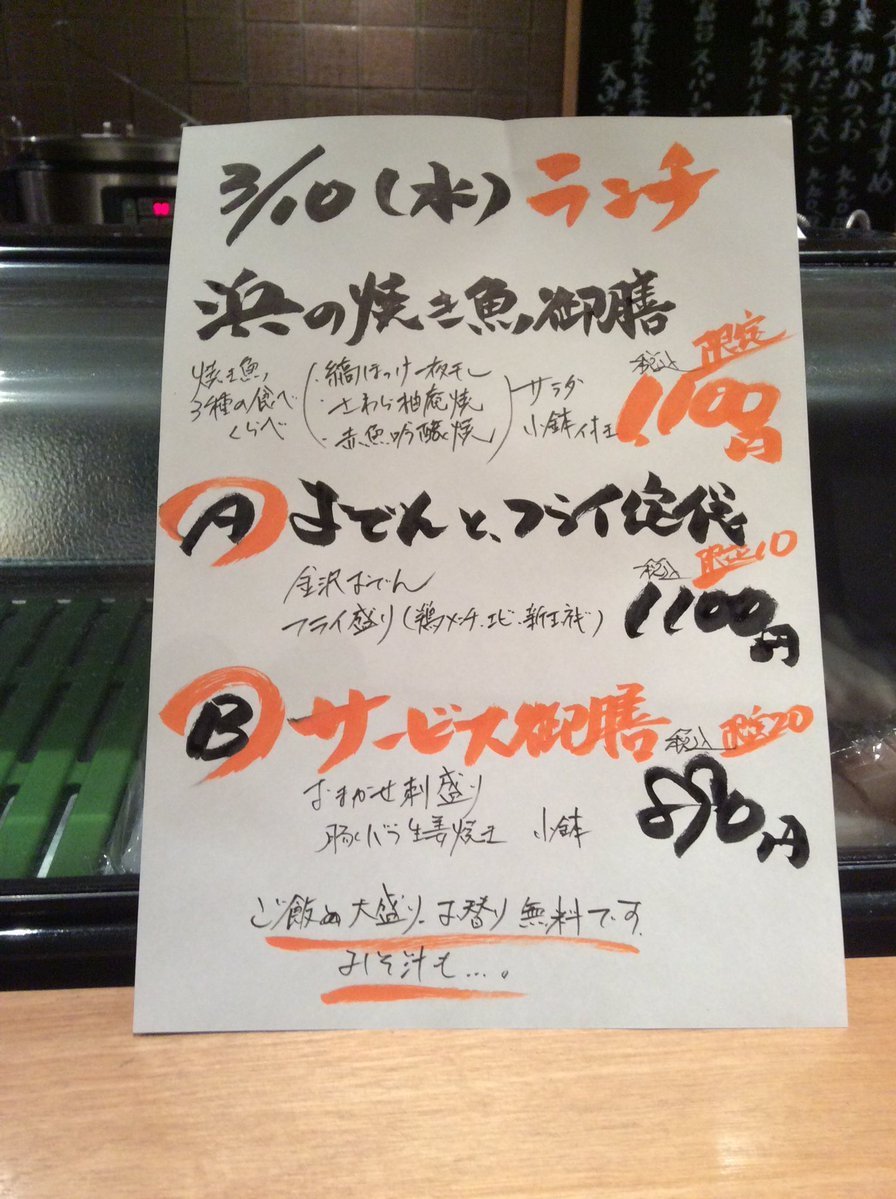 3/10(水)ランチ
浜の焼き魚御膳
限定
税込
1,100円
焼き魚
3種の食べ
くらべ
・縞ほっけ一夜干し
・さわら柚庵焼
・赤魚吟醸焼
サラダ
小鉢付き
A おでんと、フライ定食
税込 限定10
1100円
金沢おでん
フライ盛り(鶏メンチ、エビ、新玉ネギ)
B サービス御膳
税込 限定20
890円
おまかせ刺盛り
豚バラ生姜焼き 小鉢
ご飯の大盛り、お替り無料です
みそ汁も…。